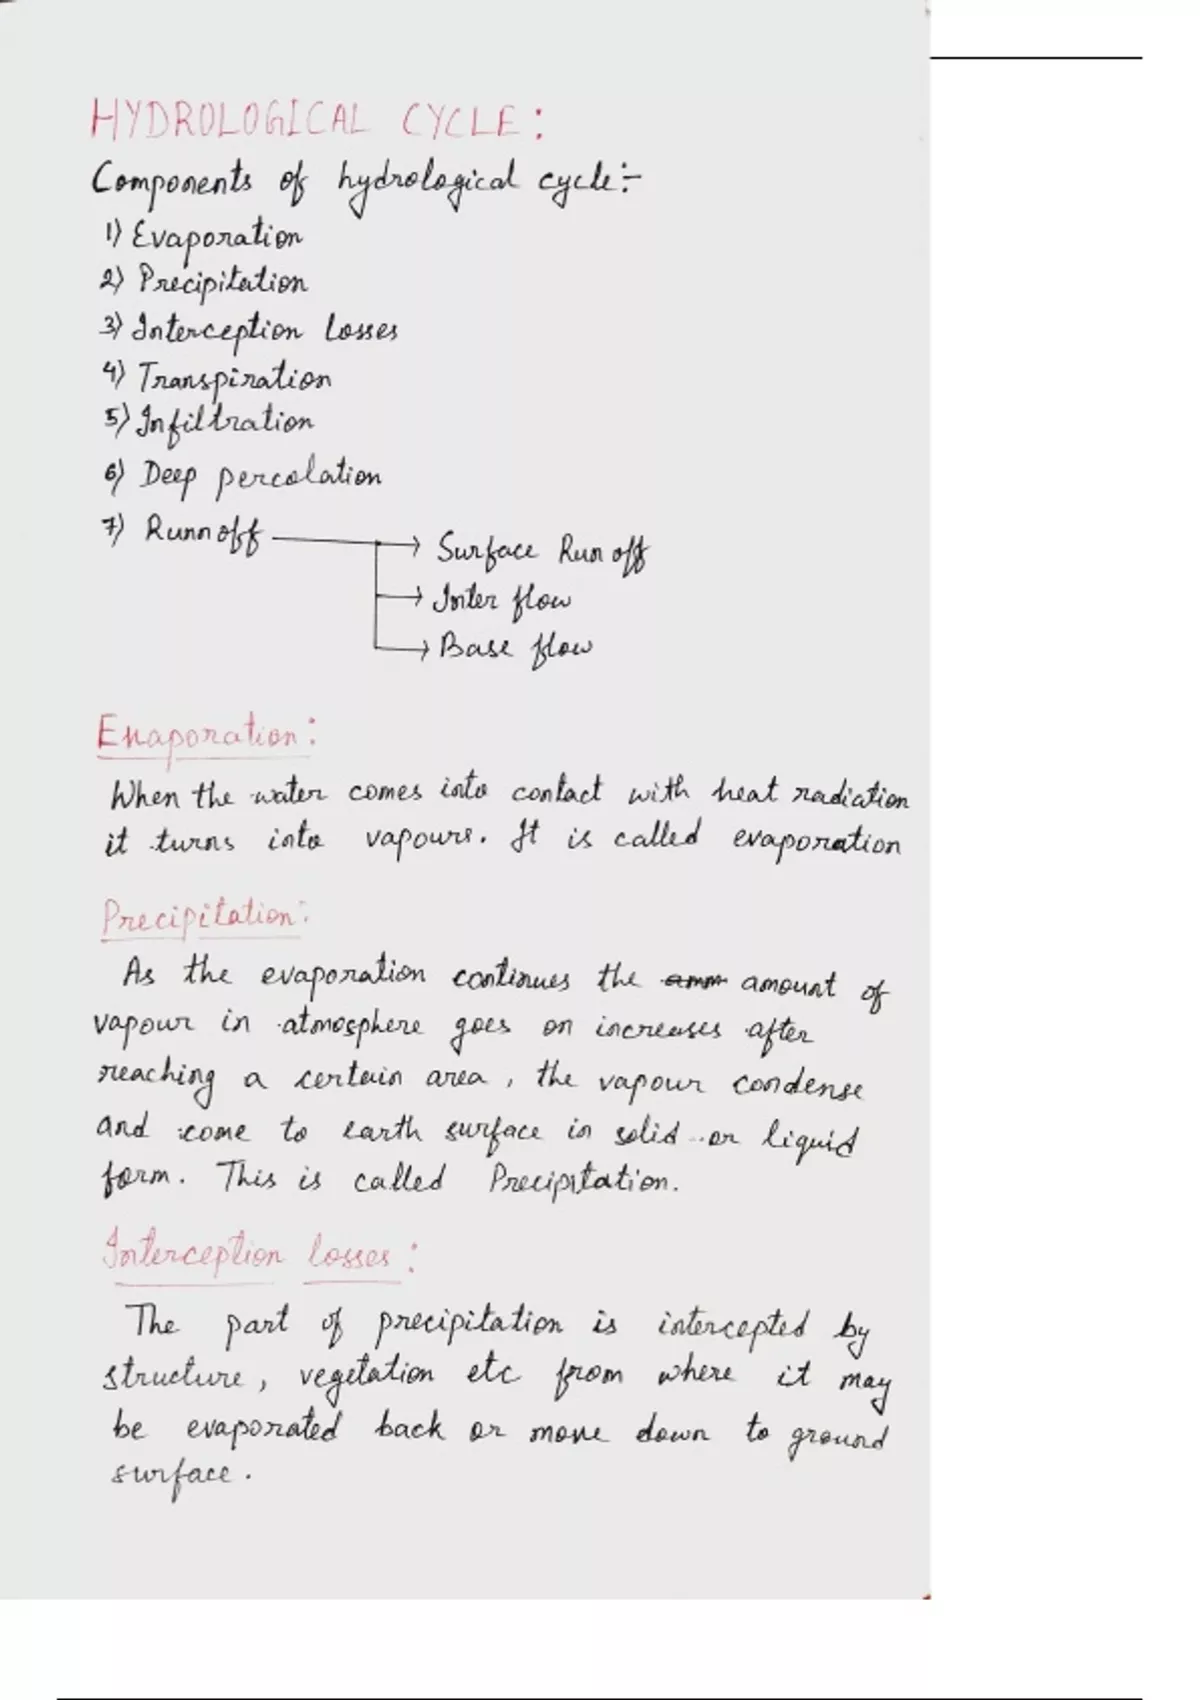 HYDROLOGICAL CYCLE:
Components of hydrological cycle:-
1) Evaporation
2) Precipitation
3) Interception Losses
4) Transpiration
5) Infiltration
6) Deep percolation
7) Runnoff
Surface Run off
Inter flow
Base flow
Evaporation:
When the water comes into contact with heat radiation
it turns into vapours. It is called evaporation
Precipitation:
As the evaporation continues the amm amount of
vapour in atmosphere goes on increases after
reaching a certain area, the vapour condense
and come to earth surface in solid or liquid
form. This is called Precipitation.
Interception losses:
The part of precipitation is intercepted by
structure, vegetation etc from where it may
be evaporated back or move down to ground
surface.